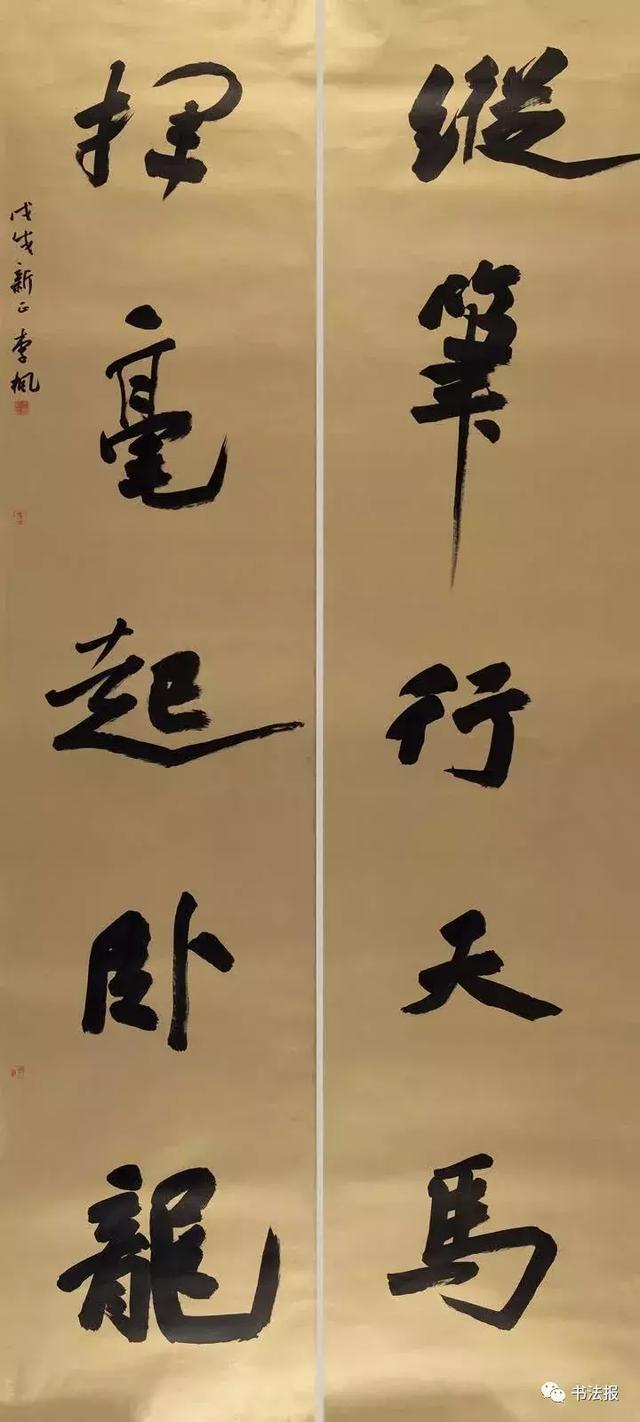 縱筆行天馬
揮毫起卧龍
戊戌新正 李楓
书法报